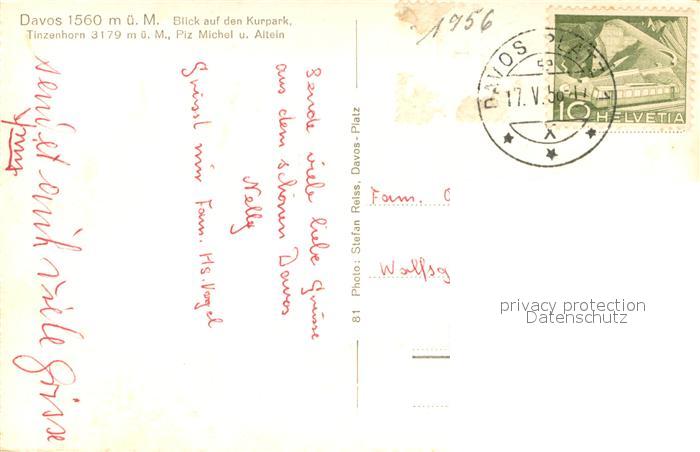 Davos 1560 m ü. M. Blick auf den Kurpark,
Tinzenhorn 3179 m ü. M., Piz Michel u. Altein
1956
DAVOS PLATZ
17.V.56-17
X
10 HELVETIA
Sende viele liebe Grüsse
aus dem schönen Davos
Nelly
Grüsst mir Fam. Hs. Vogel
sendet auch viele Grüsse
81 Photo: Stefan Reiss, Davos-Platz
Fam.
Wolfsg
privacy protection
Datenschutz